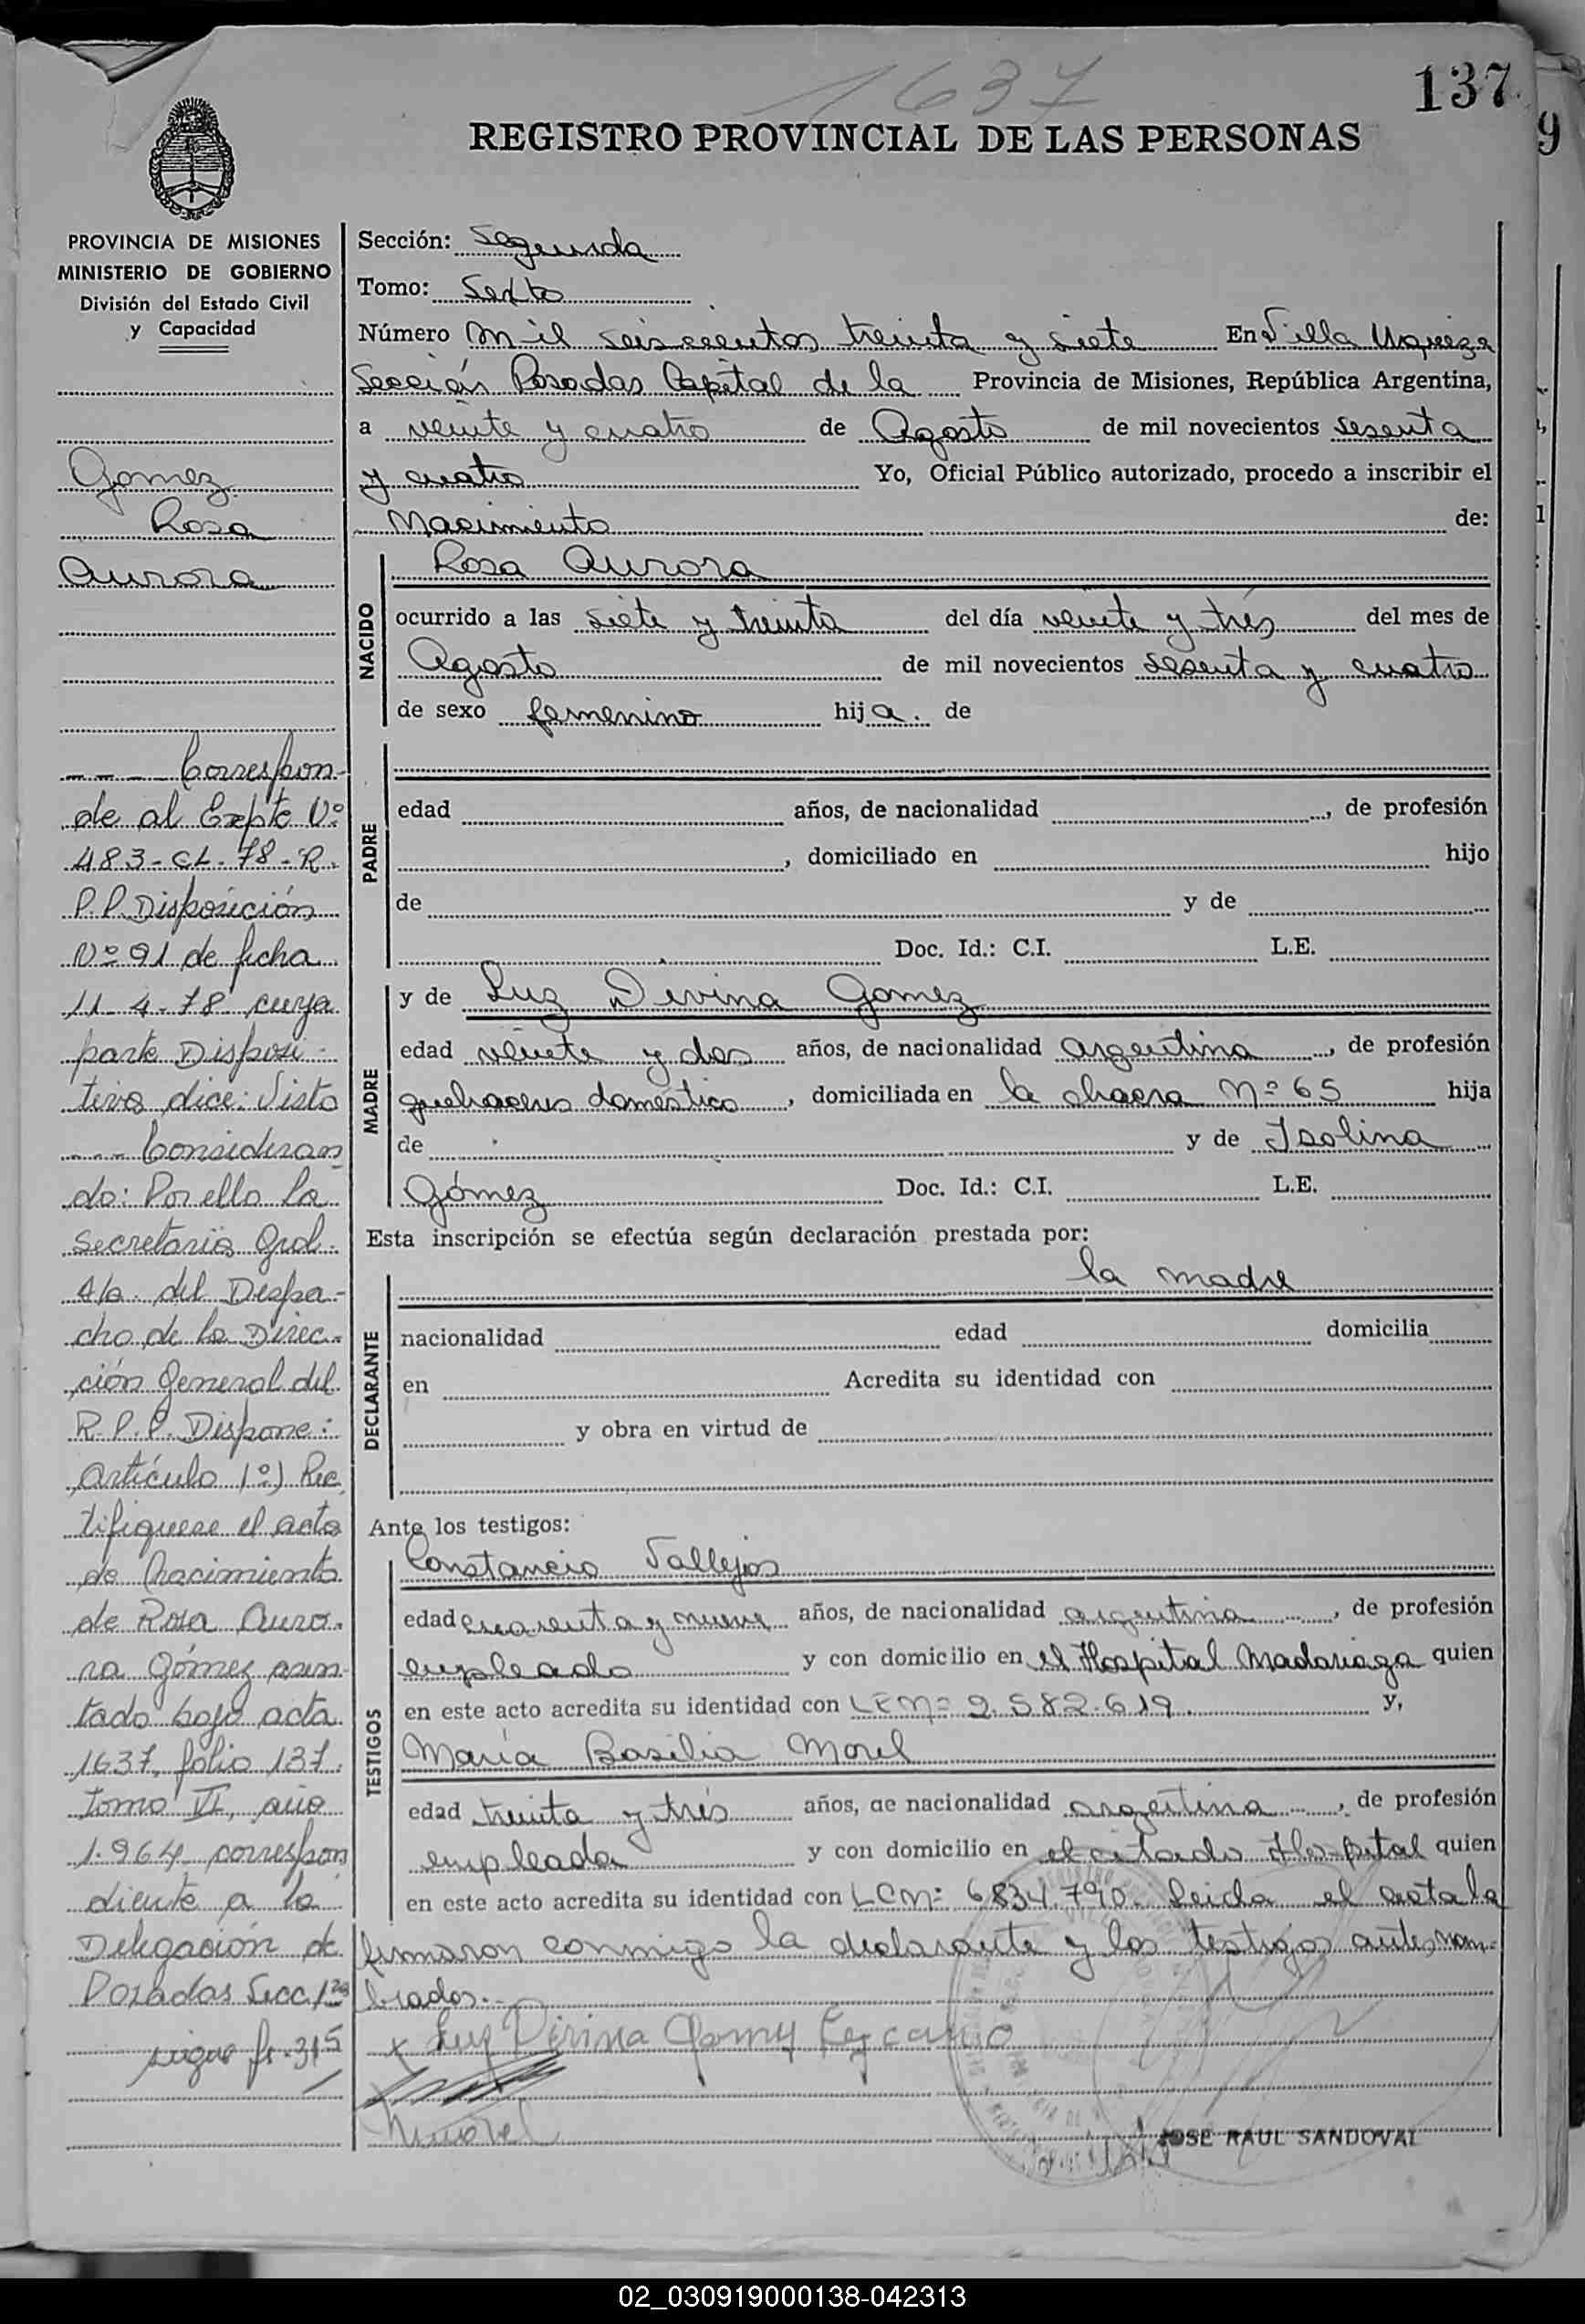 1637
137
9
REGISTRO PROVINCIAL DE LAS PERSONAS
PROVINCIA DE MISIONES
MINISTERIO DE GOBIERNO
División del Estado Civil
y Capacidad
Gomez
Rosa
Aurora
- - - Correspon-
de al Expte Nº
483-CL-78-R.
P.P. Disposición
Nº 91 de fecha
11-4-78 cuya
parte Disposi-
tiva dice: Visto
- - - Consideran
do: Por ello La
Secretaria Gral.
A/c. del Despa-
cho de la Direc-
ción General del
R.P.P. Dispone:
Artículo 1º) Rec
tifiquese el acta
de Nacimiento
de Rosa Auro-
ra Gómez asen-
tado bajo acta
1637, folio 137,
tomo VI, año
1.964, correspon
diente a la
Delegación de
Posadas Secc 1ra
sigue fs. 315
Sección: Segunda
Tomo: Sexto
Número Mil seiscientos treinta y siete En Villa Urquiza
Sección Posadas Capital de la Provincia de Misiones, República Argentina,
a veinte y cuatro de Agosto de mil novecientos sesenta
y cuatro Yo, Oficial Público autorizado, procedo a inscribir el
Nacimiento de:
NACIDO
Rosa Aurora
ocurrido a las siete y treinta del día veinte y tres del mes de
Agosto de mil novecientos sesenta y cuatro
de sexo femenino hija. de
PADRE
edad años, de nacionalidad , de profesión
, domiciliado en hijo
de y de
Doc. Id.: C.I. L.E.
MADRE
y de Luz Divina Gomez
edad veinte y dos años, de nacionalidad argentina , de profesión
quehaceres domestico , domiciliada en la chacra Nº 65 hija
de y de Isolina
Gómez Doc. Id.: C.I. L.E.
Esta inscripción se efectúa según declaración prestada por:
la madre
DECLARANTE
nacionalidad edad domicilia
en Acredita su identidad con
y obra en virtud de
Ante los testigos:
TESTIGOS
Constancio Vallejos
edad cuarenta y nueve años, de nacionalidad argentina , de profesión
empleado y con domicilio en el Hospital Madariaga quien
en este acto acredita su identidad con LEN= 2.582.619. y,
María Basilia Morel
edad treinta y tres años, de nacionalidad argentina , de profesión
empleada y con domicilio en el citado Hospital quien
en este acto acredita su identidad con LCN= 6834.790. Leida el acta la
firmaron conmigo la declarante y los testigos antes nom-
brados.-
x Luz Divina Gomez
JOSE RAUL SANDOVAL
02_030919000138-042313